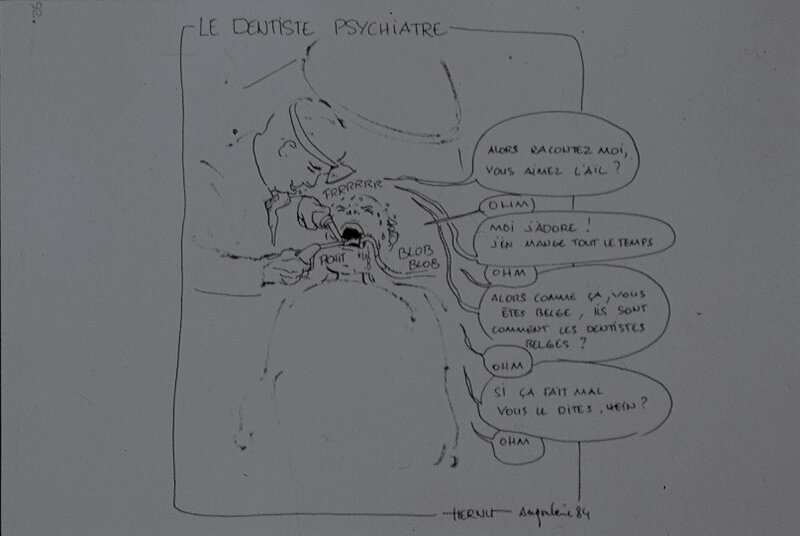 92.
LE DENTISTE PSYCHIATRE
ALORS RACONTEZ MOI,
VOUS AIMEZ L'AÏL ?
FRRRRRR
OHM
MOI J'ADORE !
J'EN MANGE TOUT LE TEMPS
BLOB
BLOB
OHM
ALORS COMME ÇA, VOUS
ÊTES BELGE, ILS SONT
COMMENT LES DENTISTES
BELGES ?
OHM
SI ÇA FAIT MAL
VOUS LE DITES, HEIN ?
OHM
84